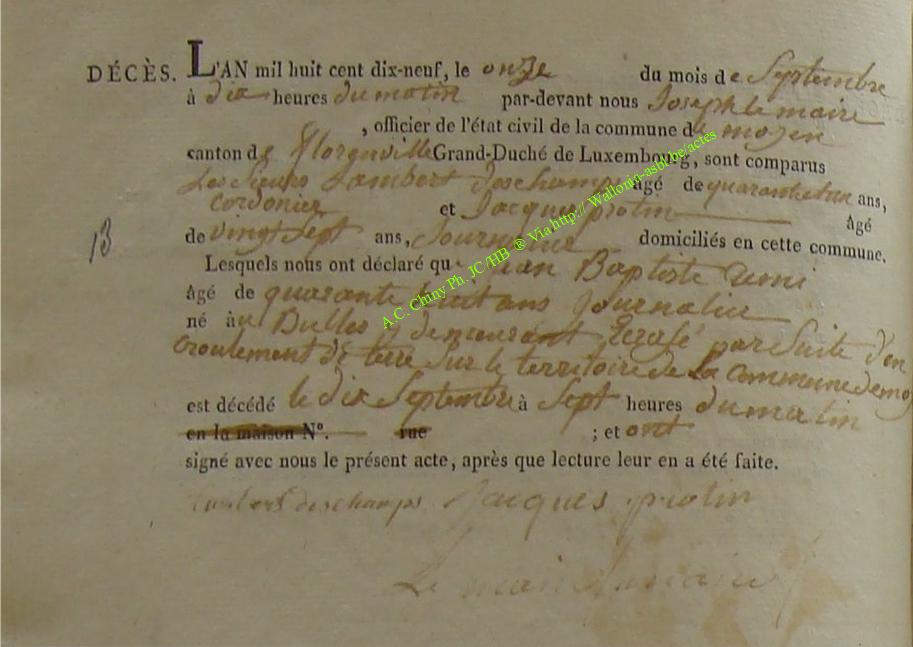 DÉCÈS. L'AN mil huit cent dix-neuf, le onze du mois de Septembre
à dix heures du matin par-devant nous Joseph le maire
, officier de l'état civil de la commune de moyen
canton de florenville Grand-Duché de Luxembourg, sont comparus
Les Sieurs Lambert deschamps âgé de quarante un ans,
Cordonier et Jacques protin âgé
13 de vingt Sept ans, Journalier domiciliés en cette commune.
Lesquels nous ont déclaré que Jean Baptiste
âgé de quarante huit ans Journalier
né à Bulles y demeurant Ecrasé par Suite d'en
croulement de terre Sur le territoire de La Commune de moy
est décédé le dix Septembre à Sept heures du matin
en la maison N°. rue ; et ont
signé avec nous le présent acte, après que lecture leur en a été faite.
Lambert deschamps Jacques protin
Le maire
A.C. Chiny Ph. JC/HB ® Via http://Wallonia-asbl.be/actes